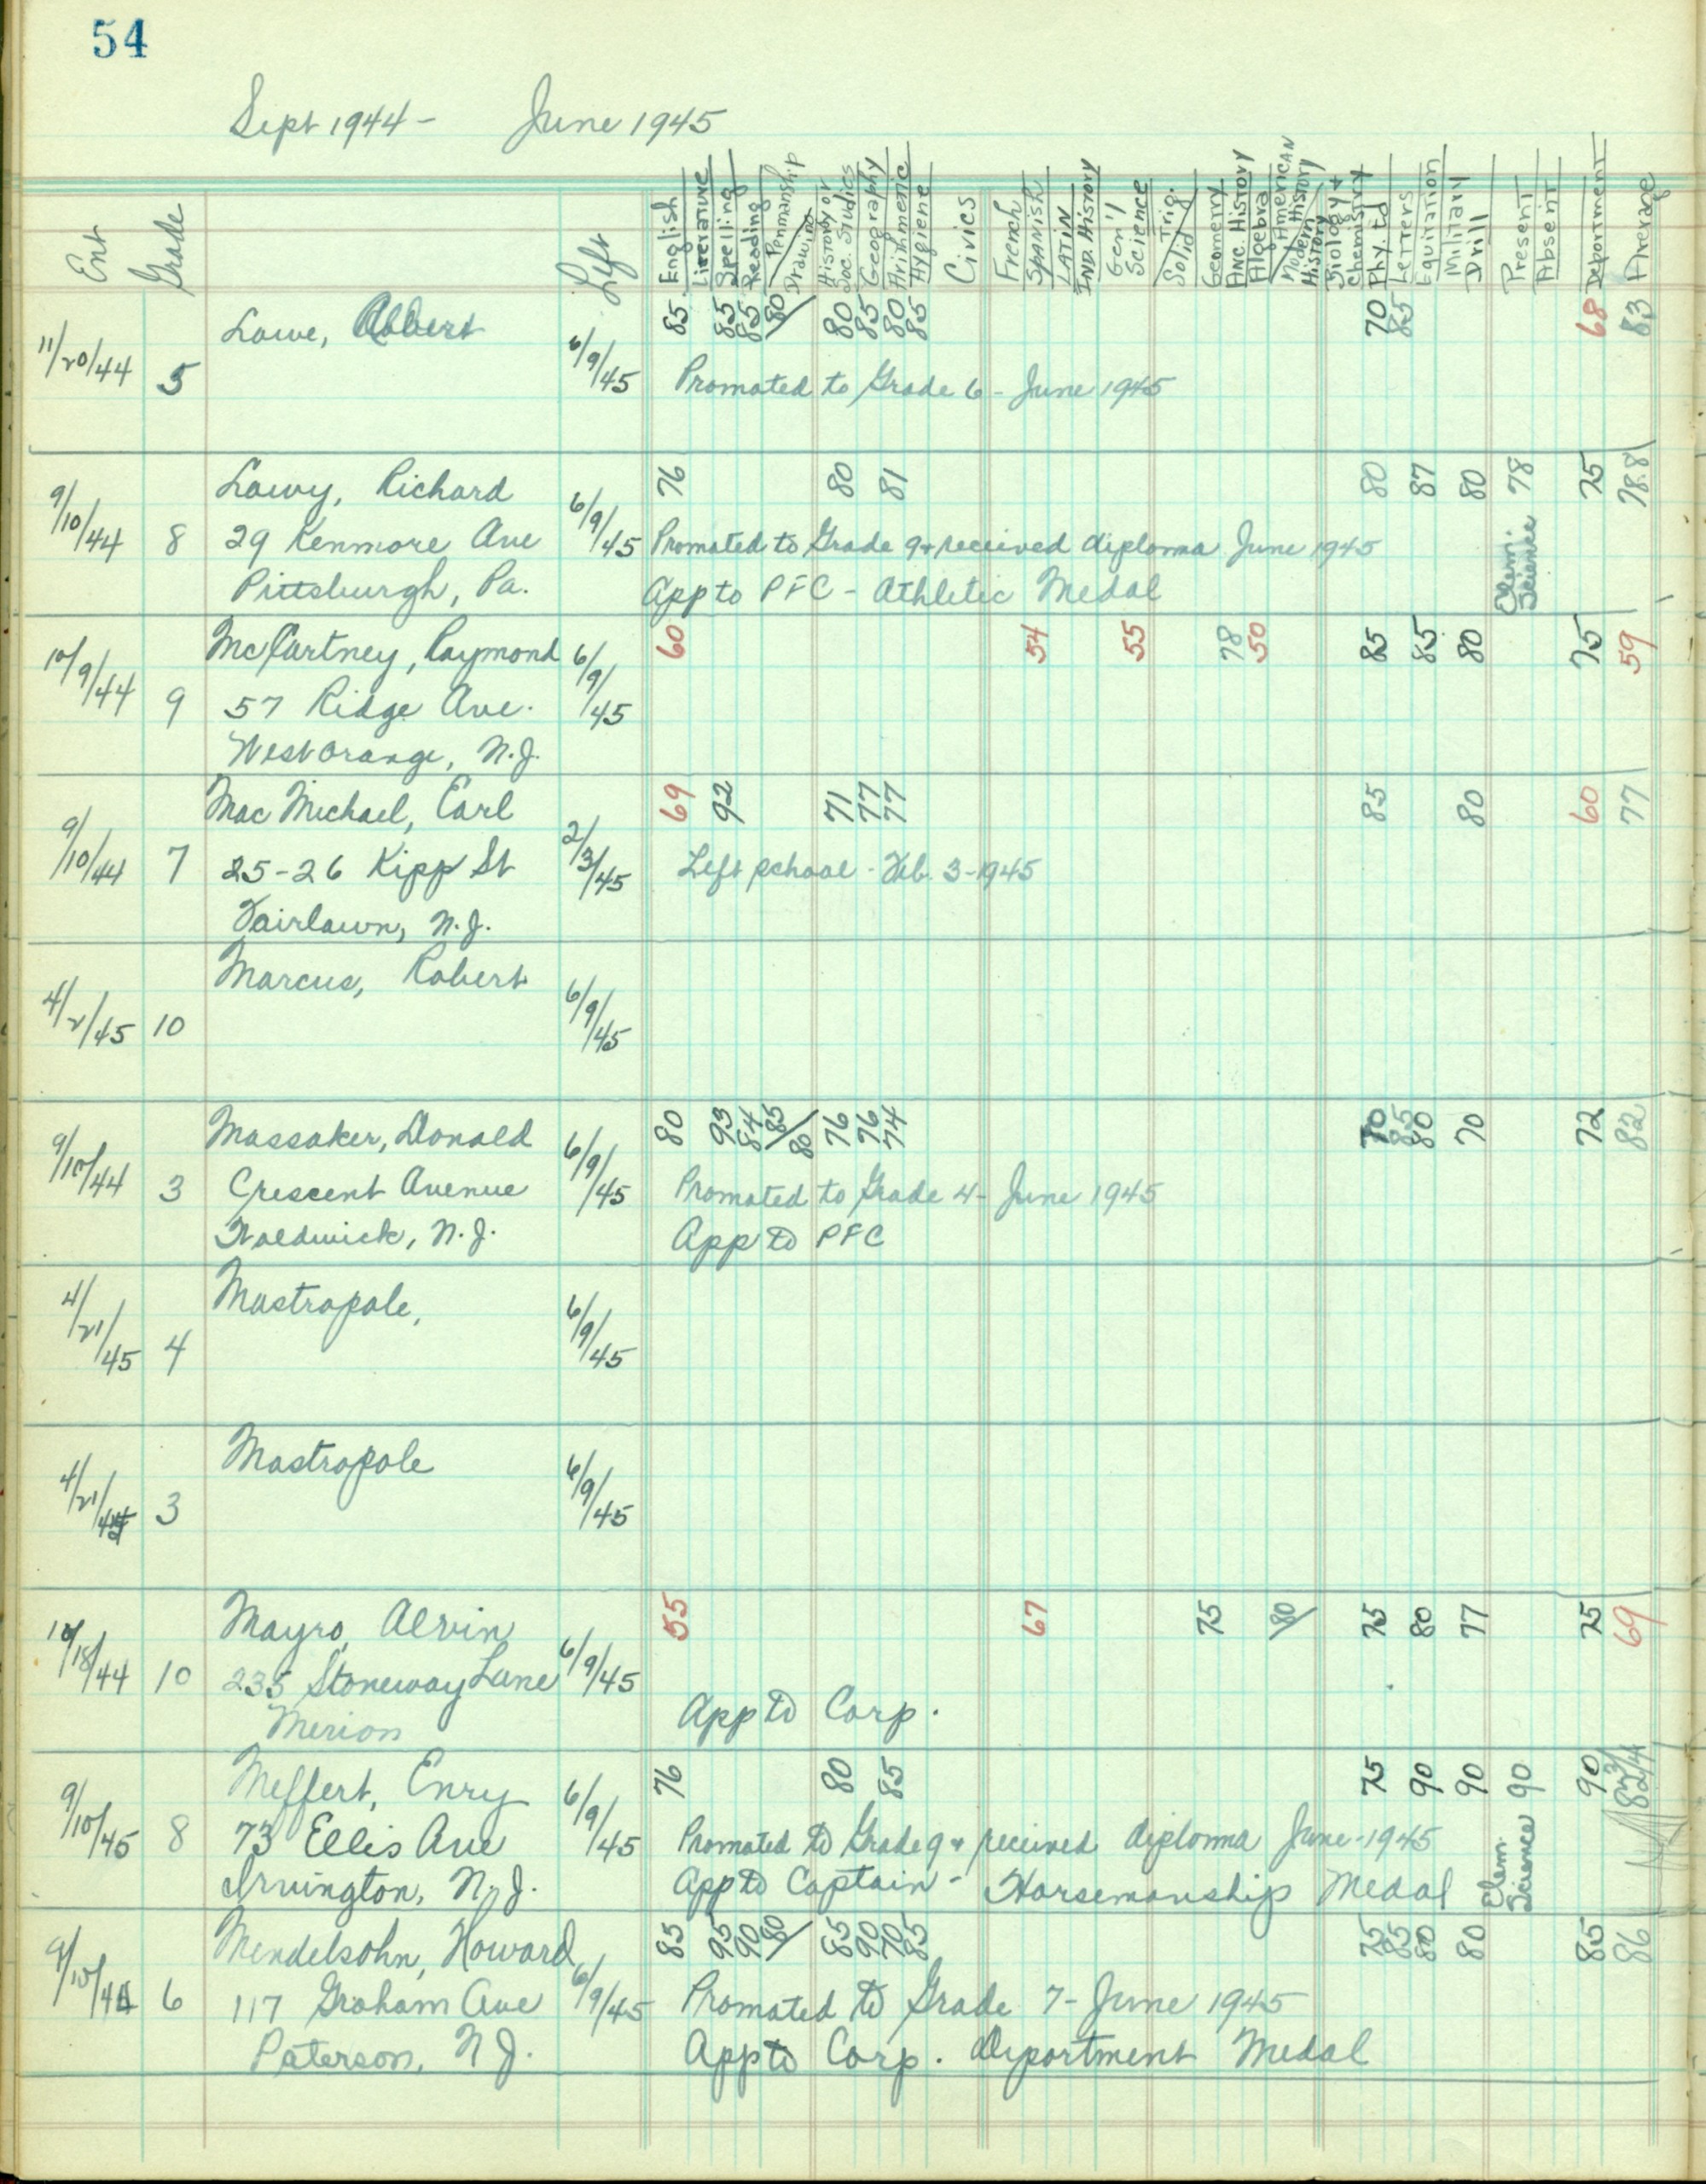 54
Sept 1944 - June 1945
Ent
Grade
Left
English
Literature
Spelling
Reading
Penmanship
Drawing
History or
Soc. Studies
Geography
Arithmetic
Hygiene
Civics
French
Spanish
Latin
Ind. History
Gen'l
Science
Trig.
Solid
Geometry
Anc. History
Algebra
American
History
Modern
History
Biology +
Chemistry
Phy. td
Letters
Equitation
Military
Drill
Present
Absent
Deportment
Average
11/20/44 5 Lowe, Albert 6/9/45 85 85 85 80/ 80 85 80 85 70 85 68 83
Promoted to Grade 6 - June 1945
9/10/44 8 Lowy, Richard 6/9/45 76 80 81 80 87 80 78 75 78.8
29 Kenmore Ave Promoted to Grade 9 + received diploma June 1945
Pittsburgh, Pa. App to PFC - Athletic Medal
Elem. Science
10/9/44 9 McCartney, Raymond 6/9/45 60 54 55 78 50 85 85 80 75 59
57 Ridge Ave.
West Orange, N.J.
9/10/44 7 Mac Michael, Earl 2/3/45 69 92 71 77 77 85 80 60 77
25-26 Kipp St Left school - Feb. 3-1945
Fairlawn, N.J.
4/2/45 10 Marcus, Robert 6/9/45
9/10/44 3 Massaker, Donald 6/9/45 80 93 84 85/80 76 76 74 70 85 80 70 72 82
Crescent Avenue Promoted to Grade 4 - June 1945
Waldwick, N.J. App to PFC
4/21/45 4 Mastropole, 6/9/45
4/21/45 3 Mastropole 6/9/45
10/18/44 10 Mayro, Alvin 6/9/45 55 67 75 80/ 75 80 77 75 69
235 Stoneway Lane
Merion App to Corp.
9/10/45 8 Meffert, Enry 6/9/45 76 80 85 75 90 90 90 90 82 3/4
73 Ellis Ave Promoted to Grade 9 + received diploma June-1945
Irvington, N.J. App to Captain - Horsemanship Medal
Elem. Science
9/10/44 6 Mendelsohn, Howard 6/9/45 85 95 90 80/ 85 90 70 85 75 85 80 80 85 86
117 Graham Ave Promoted to Grade 7 - June 1945
Paterson, N.J. App to Corp. Deportment Medal